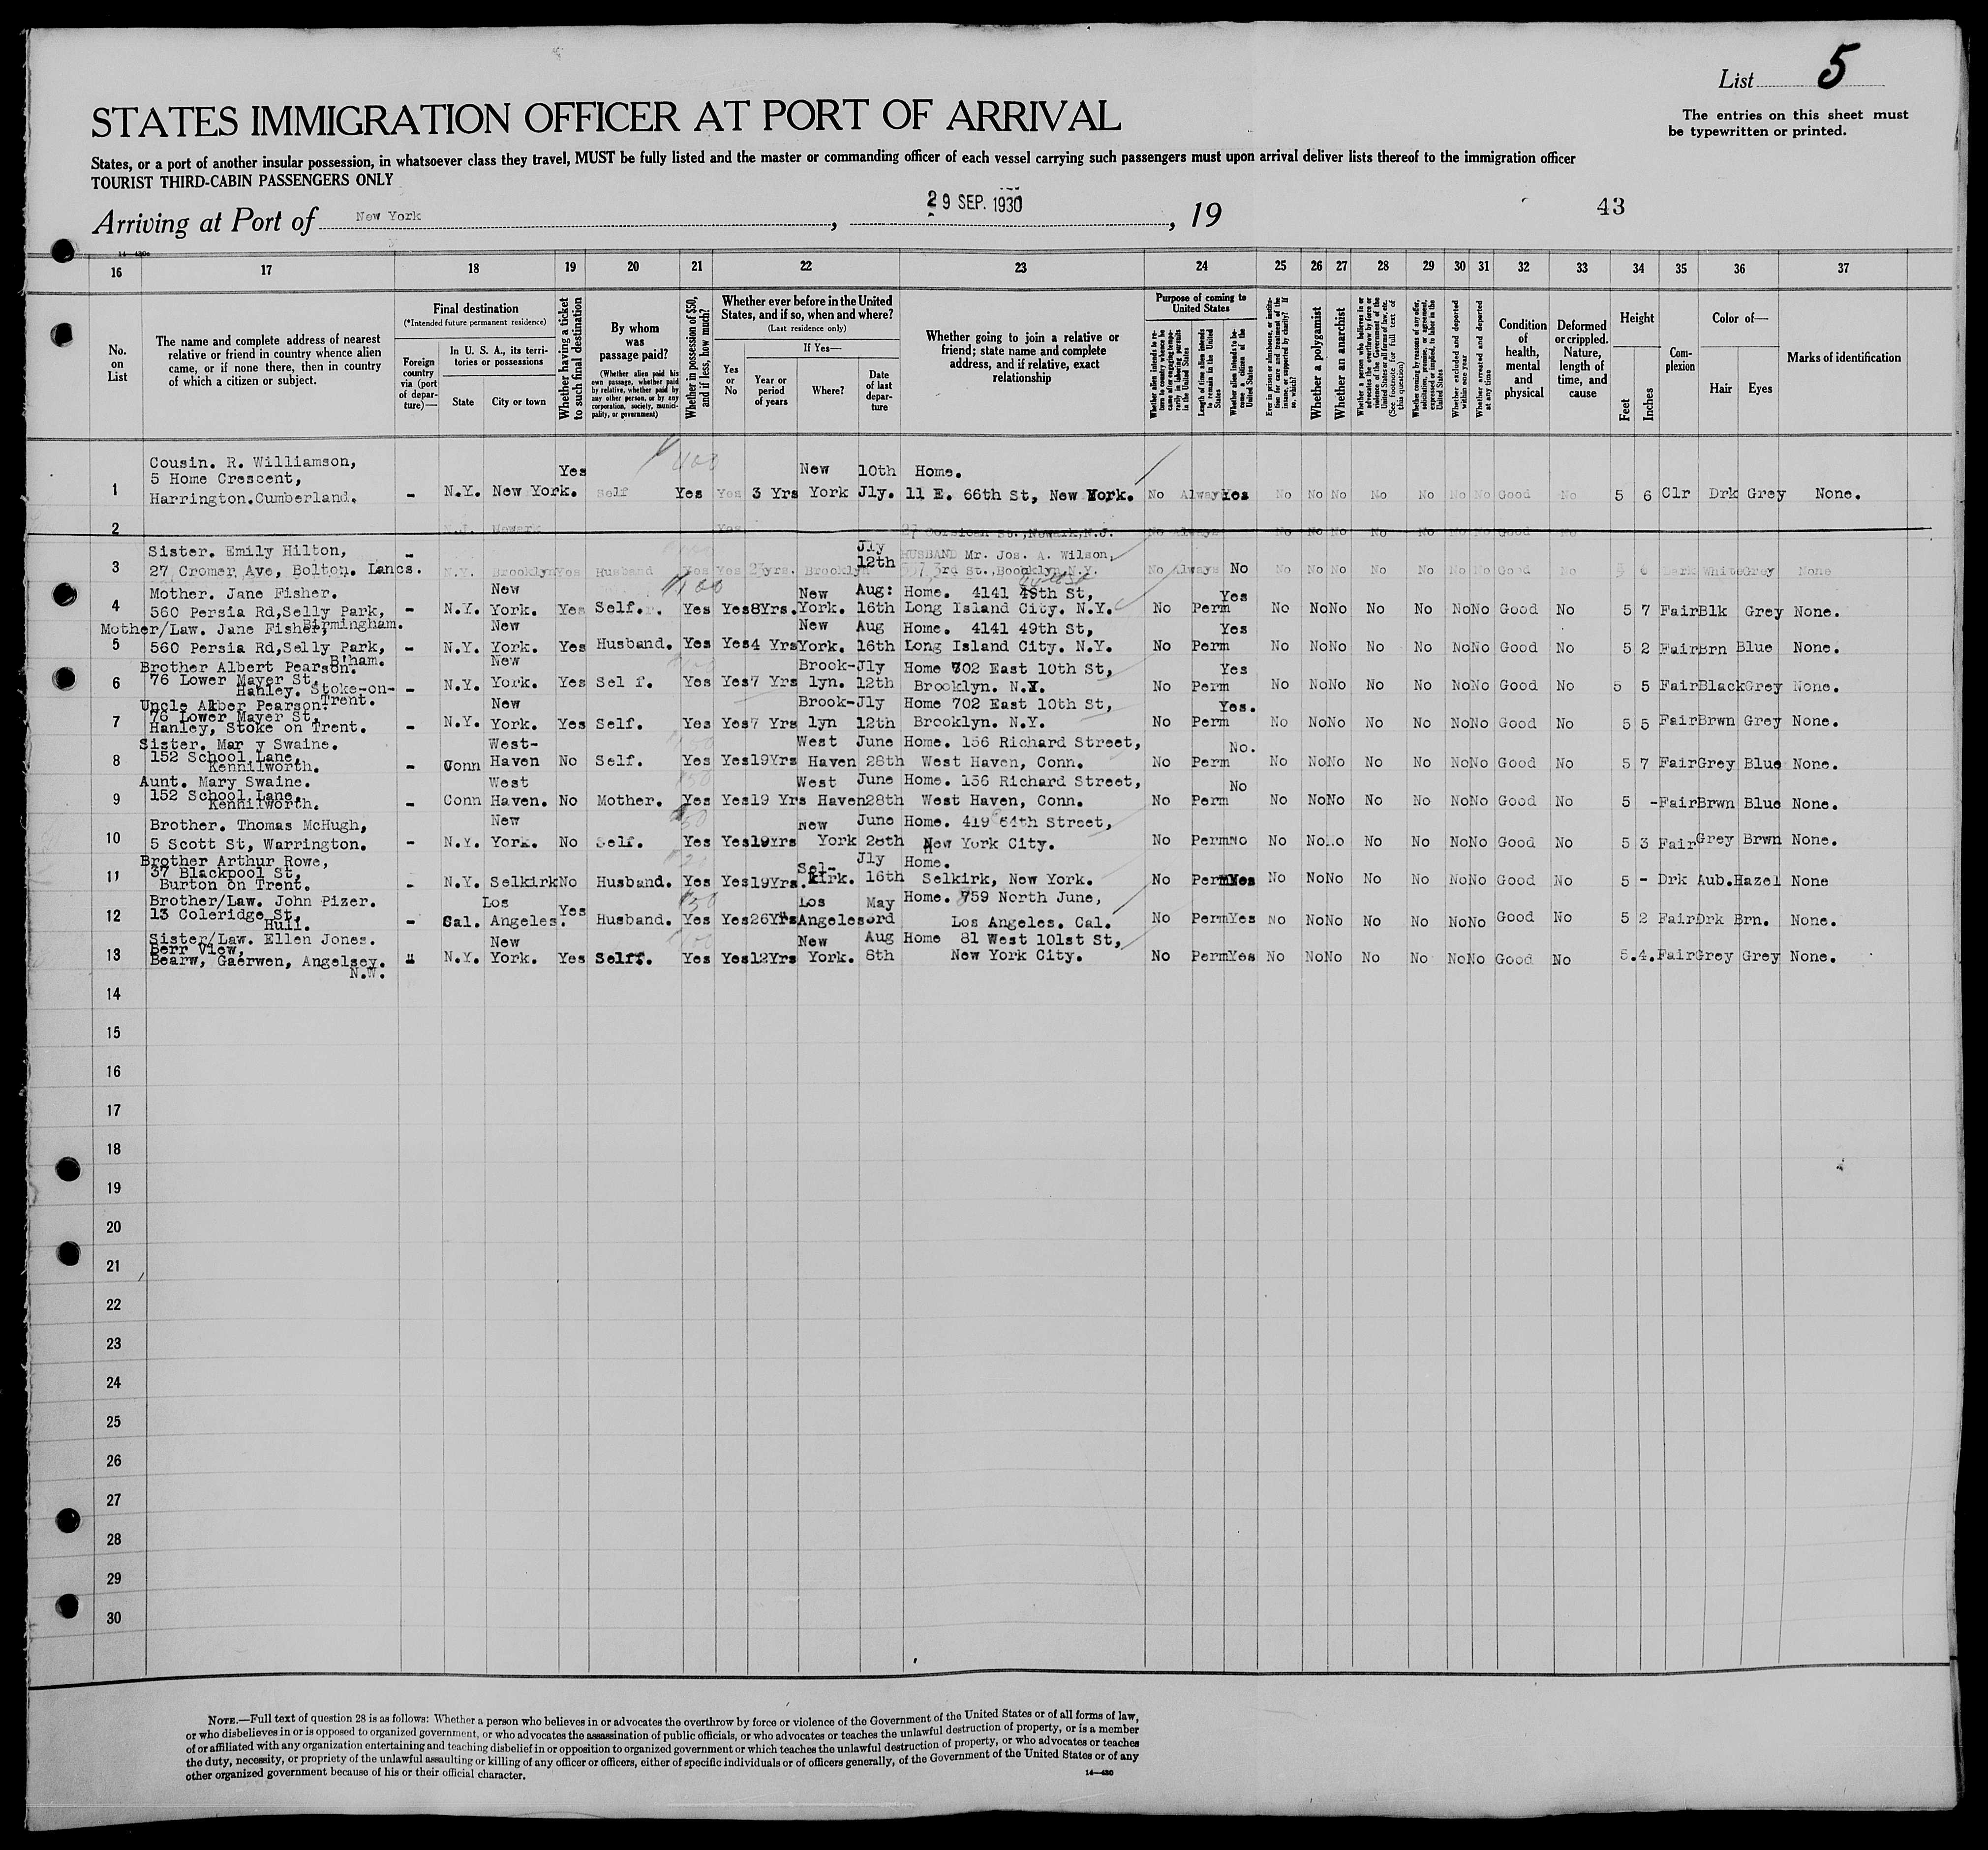 List 5
The entries on this sheet must
be typewritten or printed.
STATES IMMIGRATION OFFICER AT PORT OF ARRIVAL
States, or a port of another insular possession, in whatsoever class they travel, MUST be fully listed and the master or commanding officer of each vessel carrying such passengers must upon arrival deliver lists thereof to the immigration officer
TOURIST THIRD-CABIN PASSENGERS ONLY
Arriving at Port of New York, 29 SEP. 1930, 19 43
16 17 18 19 20 21 22 23 24 25 26 27 28 29 30 31 32 33 34 35 36 37
No. on List
The name and complete address of nearest relative or friend in country whence alien came, or if none there, then in country of which a citizen or subject.
Final destination
(*Intended future permanent residence)
Foreign country via (port of departure)—
In U. S. A., its territories or possessions
State City or town
Whether having a ticket to such final destination
By whom was passage paid?
(Whether alien paid his own passage, whether paid by relative, whether paid by any other person, or by any corporation, society, municipality, or government)
Whether in possession of $50, and if less, how much?
Whether ever before in the United States, and if so, when and where?
(Last residence only)
Yes or No
If Yes—
Year or period of years
Where?
Date of last departure
Whether going to join a relative or friend; state name and complete address, and if relative, exact relationship
Purpose of coming to United States
Whether alien intends to return to country whence he came after engaging temporarily in laboring pursuits in the United States
Length of time alien intends to remain in the United States
Whether alien intends to become a citizen of the United States
Ever in prison or almshouse, or institution for care and treatment of the insane, or supported by charity? If so, which?
Whether a polygamist
Whether an anarchist
Whether a person who believes in or advocates the overthrow by force or violence of the Government of the United States or all forms of law, etc. (See footnote for full text of this question)
Whether coming by reasons of any offer, solicitation, promise, or agreement, expressed or implied, to labor in the United States
Whether excluded and deported within one year
Whether arrested and deported at any time
Condition of health, mental and physical
Deformed or crippled. Nature, length of time, and cause
Height
Feet Inches
Complexion
Color of—
Hair Eyes
Marks of identification
1 Cousin. R. Williamson,
5 Home Crescent,
Harrington.Cumberland. - N.Y. New York. Yes Self Yes Yes 3 Yrs New York 10th Jly. Home. 11 E. 66th St, New York. No Always Yes No No No No No No No Good No 5 6 Clr Drk Grey None.
2 N.J. Newark Yes 27 Corsican St.,Newark,N.J. No Always No No No No No No No Good No
3 Sister. Emily Hilton,
27 Cromer Ave, Bolton. Lancs. - N.Y. Brooklyn Yes Husband Yes Yes yrs. Brooklyn Jly 12th HUSBAND Mr. Jos. A. Wilson, 3rd St., Brooklyn, N.Y. No Always No No No No No No No No Good No 5 Dark White Grey None
4 Mother. Jane Fisher.
560 Persia Rd,Selly Park,
Birmingham. - N.Y. New York. Yes Self. Yes Yes 8Yrs. New York. Aug: 16th Home. 4141 49th St, Long Island City. N.Y. No Perm Yes No No No No No No No Good No 5 7 Fair Blk Grey None.
5 Mother/Law. Jane Fisher,
560 Persia Rd,Selly Park,
B'ham. - N.Y. New York. Yes Husband. Yes Yes 4 Yrs New York. Aug 16th Home. 4141 49th St, Long Island City. N.Y. No Perm Yes No No No No No No No Good No 5 2 Fair Brn Blue None.
6 Brother Albert Pearson.
76 Lower Mayer St,
Hanley. Stoke-on-
Trent. - N.Y. New York. Yes Sel f. Yes Yes 7 Yrs Brook-lyn. Jly 12th Home 702 East 10th St, Brooklyn. N.Y. No Perm Yes No No No No No No No Good No 5 5 Fair Black Grey None.
7 Uncle Alber Pearson.
76 Lower Mayer St,
Hanley, Stoke on Trent. - N.Y. New York. Yes Self. Yes Yes 7 Yrs Brook-lyn Jly 12th Home 702 East 10th St, Brooklyn. N.Y. No Perm Yes. No No No No No No No Good No 5 5 Fair Brwn Grey None.
8 Sister. Mar y Swaine.
152 School Lane,
Kennilworth. - Conn West-Haven No Self. Yes Yes 19Yrs West Haven June 28th Home. 156 Richard Street, West Haven, Conn. No Perm No. No No No No No No No Good No 5 7 Fair Grey Blue None.
9 Aunt. Mary Swaine.
152 School Lane,
Kennilworth. - Conn West Haven. No Mother. Yes Yes 19 Yrs West Haven June 28th Home. 156 Richard Street, West Haven, Conn. No Perm No No No No No No No No Good No 5 - Fair Brwn Blue None.
10 Brother. Thomas McHugh,
5 Scott St, Warrington. - N.Y. New York. No Self. Yes Yes 19Yrs New York June 28th Home. 419 64th Street, New York City. No Perm No No No No No No No No Good No 5 3 Fair Grey Brwn None.
11 Brother Arthur Rowe,
37 Blackpool St,
Burton on Trent. - N.Y. Selkirk No Husband. Yes Yes 19Yrs. Sel-kirk. Jly 16th Home. Selkirk, New York. No Perm Yes No No No No No No No Good No 5 - Drk Aub. Hazel None
12 Brother/Law. John Pizer.
13 Coleridge St,
Hull. - Cal. Los Angeles. Yes Husband. Yes Yes 26Yrs Los Angeles May 3rd Home. 759 North June, Los Angeles. Cal. No Perm Yes No No No No No No No Good No 5 2 Fair Drk Brn. None.
13 Sister/Law. Ellen Jones.
Berr View,
Bearw, Gaerwen, Angelsey.
N.W. - N.Y. New York. Yes Selff. Yes Yes 12Yrs New York. Aug 8th Home 81 West 101st St, New York City. No Perm Yes No No No No No No No Good No 5.4. Fair Grey Grey None.
14
15
16
17
18
19
20
21
22
23
24
25
26
27
28
29
30
NOTE.—Full text of question 28 is as follows: Whether a person who believes in or advocates the overthrow by force or violence of the Government of the United States or of all forms of law,
or who disbelieves in or is opposed to organized government, or who advocates the assassination of public officials, or who advocates or teaches the unlawful destruction of property, or is a member
of or affiliated with any organization entertaining and teaching disbelief in or opposition to organized government or which teaches the unlawful destruction of property, or who advocates or teaches
the duty, necessity, or propriety of the unlawful assaulting or killing of any officer or officers, either of specific individuals or of officers generally, of the Government of the United States or of any
other organized government because of his or their official character.
14—430